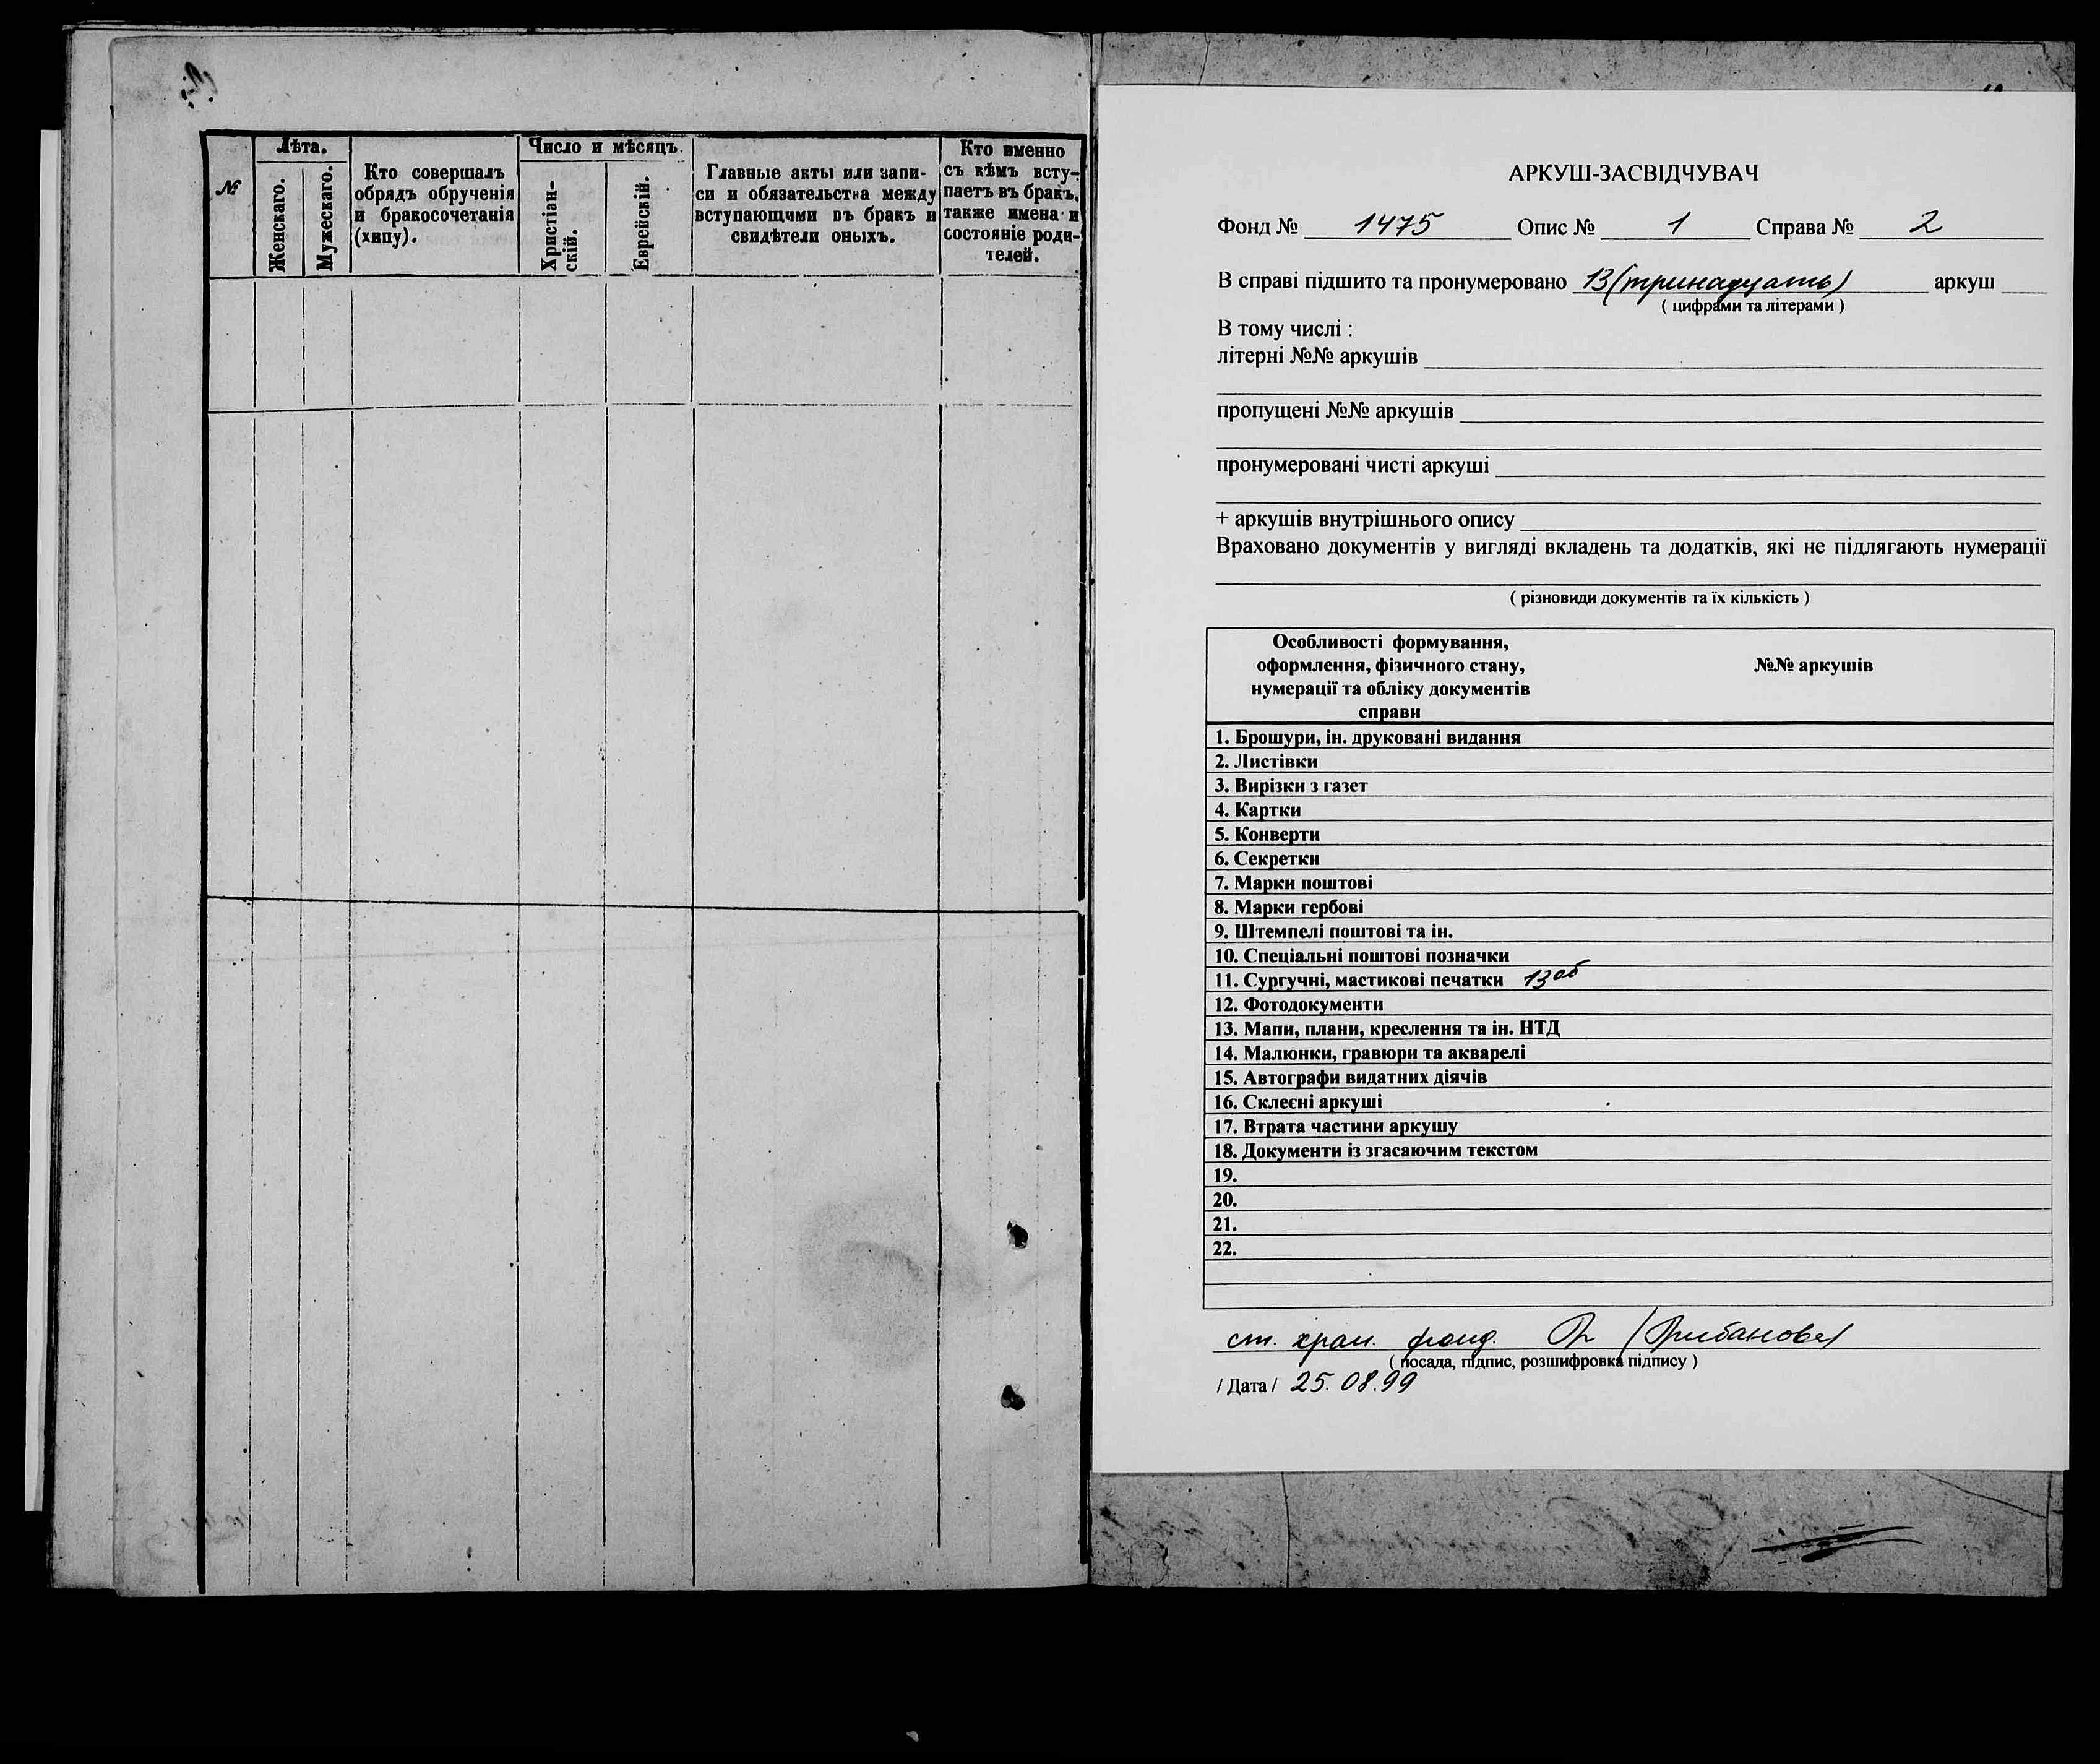 №
Лѣта.
Женскаго.
Мужескаго.
Кто совершалъ
обрядъ обрученія
и бракосочетанія
(хипу).
Число и мѣсяцъ.
Христіан-
скій.
Еврейскій.
Главные акты или запи-
си и обязательства между
вступающими въ бракъ и
свидѣтели оныхъ.
Кто именно
съ кѣмъ всту-
паетъ въ бракъ,
также имена и
состояніе роди-
телей.
АРКУШ-ЗАСВІДЧУВАЧ
Фонд № 1475 Опис № 1 Справа № 2
В справі підшито та пронумеровано 13 (тринадцать) аркуш
( цифрами та літерами )
В тому числі :
літерні №№ аркушів
пропущені №№ аркушів
пронумеровані чисті аркуші
+ аркушів внутрішнього опису
Враховано документів у вигляді вкладень та додатків, які не підлягають нумерації
( різновиди документів та їх кількість )
Особливості формування,
оформлення, фізичного стану,
нумерації та обліку документів
справи
№№ аркушів
1. Брошури, ін. друковані видання
2. Листівки
3. Вирізки з газет
4. Картки
5. Конверти
6. Секретки
7. Марки поштові
8. Марки гербові
9. Штемпелі поштові та ін.
10. Спеціальні поштові позначки
11. Сургучні, мастикові печатки 13об
12. Фотодокументи
13. Мапи, плани, креслення та ін. НТД
14. Малюнки, гравюри та акварелі
15. Автографи видатних діячів
16. Склеєні аркуші
17. Втрата частини аркушу
18. Документи із згасаючим текстом
19.
20.
21.
22.
ст. хран. фонд.
( посада, підпис, розшифровка підпису )
/ Дата / 25.08.99